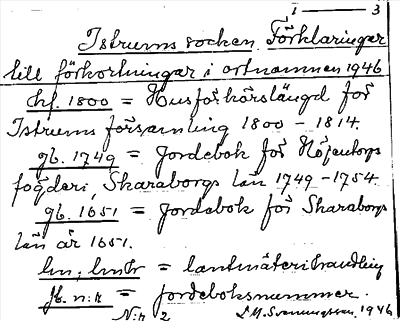 1 — 3
Istrums socken. Förklaringar
till förkortningar i ortnamnen 1946
hf. 1800 = Husförhörslängd för
Istrums församling 1800-1814.
jb. 1749 = Jordebok för Höjentorps
fögderi, Skaraborgs län 1749-1754.
jb. 1651 = Jordebok för Skaraborgs
län år 1651.
lm; lmtr = lantmäterihandling
jb. n:r = jordeboksnummer.
N:r 2
1946